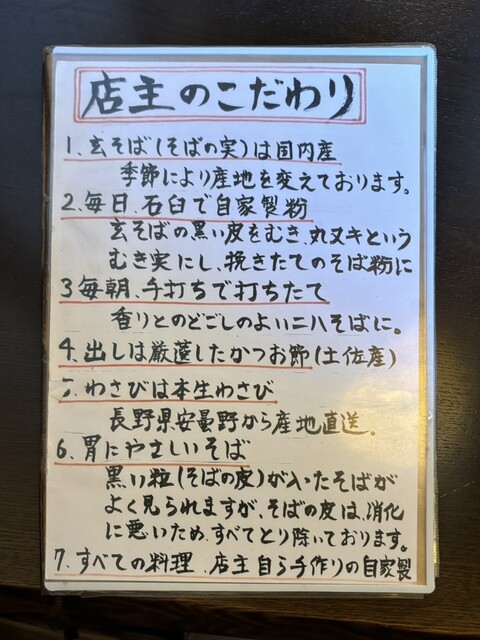 店主のこだわり
1、玄そば(そばの実)は国内産
季節により産地を変えております。
2、毎日、石臼で自家製粉
玄そばの黒い皮をむき、丸ヌキという
むき実にし、挽きたてのそば粉に
3 毎朝、手打ちで打ちたて
香りとのどごしのよい二八そばに。
4、出しは厳選したかつお節(土佐産)
5、わさびは本生わさび
長野県安曇野から産地直送。
6、胃にやさしいそば
黒い粒(そばの皮)が入ったそばが
よく見られますが、そばの皮は、消化
に悪いため、すべてとり除いております。
7、すべての料理、店主自ら手作りの自家製